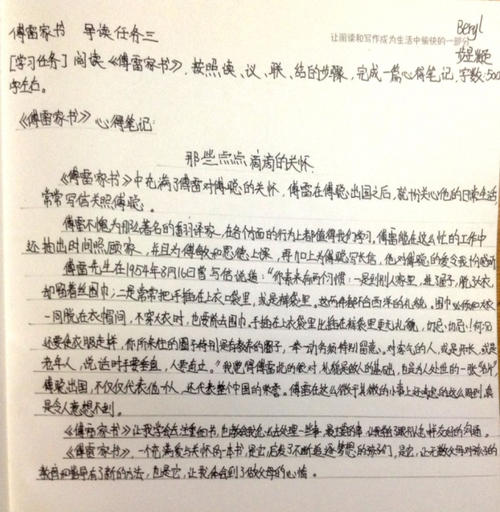 Beryl
傅雷家书 导读任务三
让阅读和写作成为生活中愉快的一部分
[学习任务] 阅读《傅雷家书》，按照读、议、联、结的步骤，完成一篇心得笔记，字数：500
字左右。
《傅雷家书》心得笔记：
那些点点滴滴的关怀
《傅雷家书》中充满了傅雷对傅聪的关怀，傅雷在傅聪出国之后，就十分关心他的日常生活
常常写信关照傅聪。
傅雷不愧为那么著名的翻译家，在各个方面的行为上都值得我们学习。傅雷能在这么忙的工作中
还抽出时间照顾家，并且为傅敏和恩德上课，再加上为傅聪写长信，他对傅聪的爱令我们感动
傅雷先生在1954年8月16日曾写信说道：“你素来有两个习惯：一是到别人家里，进了屋子，脱了大衣，
却留着丝围巾；二是常常把手插在上衣口袋里，或是裤袋里。这两件都不合西洋的礼貌。围巾必须和大衣
一同脱在衣帽间，不穿大衣时，也要除去围巾。手插在上衣袋里比插在裤袋里更无礼貌，切忌切忌！何况
还要使衣服走样，你所来往的圈子特别是有教养的圈子，一举一动务须特别留意。对客气的人，或是师长，或是
老年人，说话时手要垂直，人要立直。”我觉得傅雷说的很对，礼貌是做人的基础，也是为人处世的一张“名片”
傅聪出国，不仅仅代表他个人，还代表整个中国的荣誉。傅雷在这么微乎其微的小事上还考虑的这么周到，真
是令人意想不到。
《傅雷家书》，一个充满爱与关怀的一本书，是它，启发了不断追逐梦想的孩子们，是它，让无数父母对孩子的
教育和督导有了新的方法，也是它，让我体会到了做父母的心情。